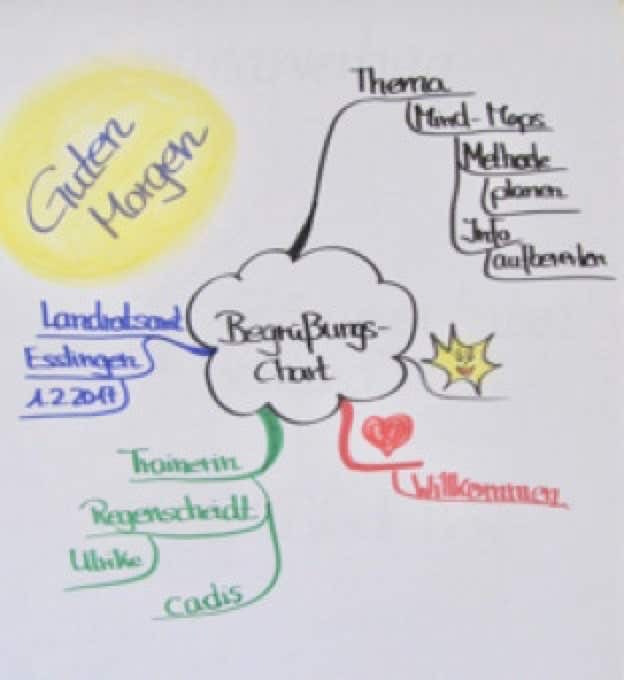 Guten
Morgen
Thema
Mind-Maps
Methode
planen
Info
aufbereiten
Begrüßungs-
Chart
Landratsamt
Esslingen
1.2.2017
Willkommen
Trainerin
Regenscheidt
Ulrike
cadis